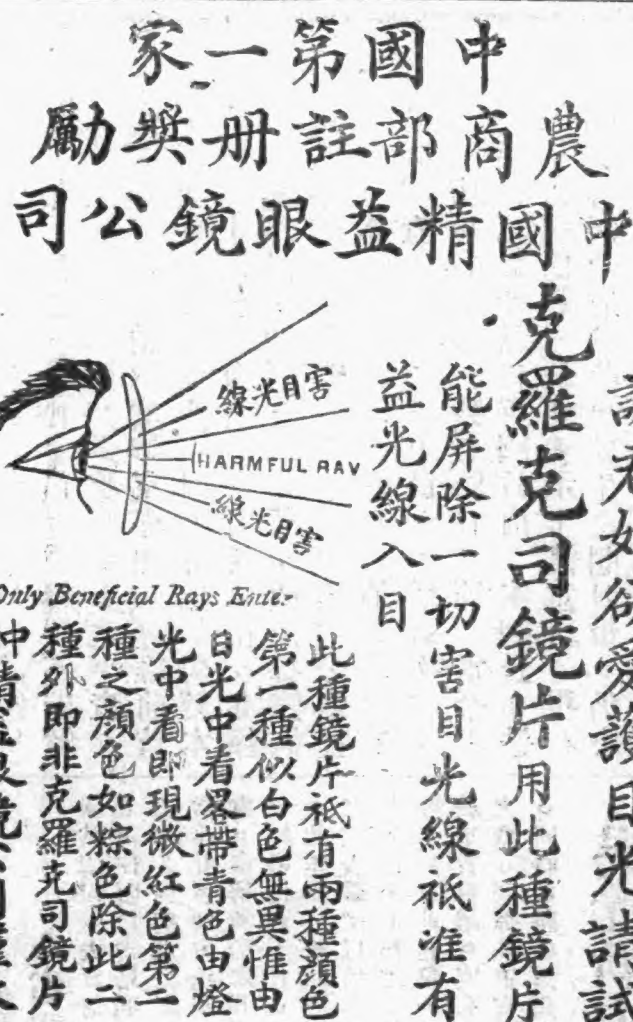 中國第一家
農商部註册獎勵
中國精益眼鏡公司
諸君如欲愛護目光請試
克羅克司鏡片用此種鏡片
能屏除一切害目光線祇准有
益光線入目
害目光線
HARMFUL RAY
害目光線
Only Beneficial Rays Enter
此種鏡片祇有兩種顏色
第一種似白色無異惟由
日光中看畧帶青色由燈
光中看即現微紅色第二
種之顏色如粽色除此二
種外即非克羅克司鏡片
中精益眼鏡公司